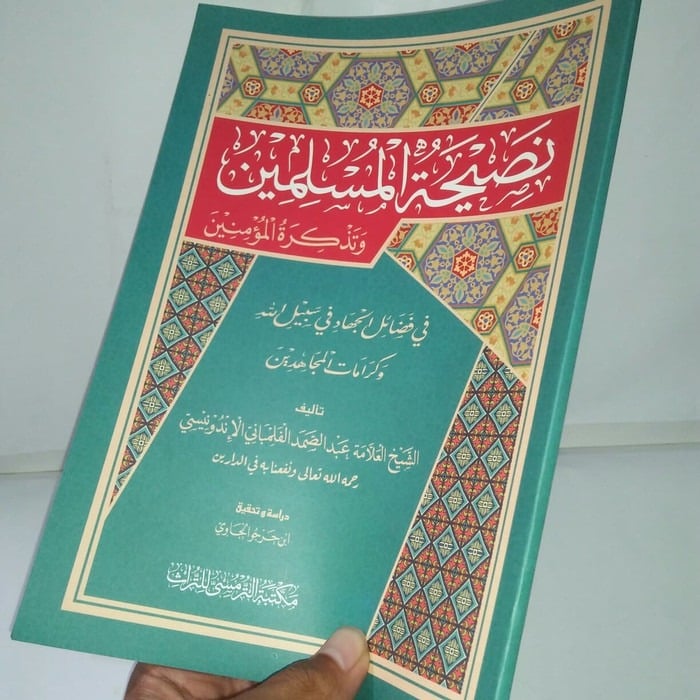 نَصِيحَةُ الْمُسْلِمِينَ
وَتَذْكِرَةُ الْمُؤْمِنِينَ
في فَضَائل الجهاد في سَبِيل الله
وكرَامَات المجَاهدِين
تأليف
الشَّيْخ العَلَّامَة عَبد الصَّمَد الفَلِمْبَاني الإندُونِيسِي
رحمه الله تعالى ونفعنا به في الدارين
دراسة وتحقيق
ابن حَرجُو الجَاوي
مَكتبَة التُّرمُسِيّ للتُّراث